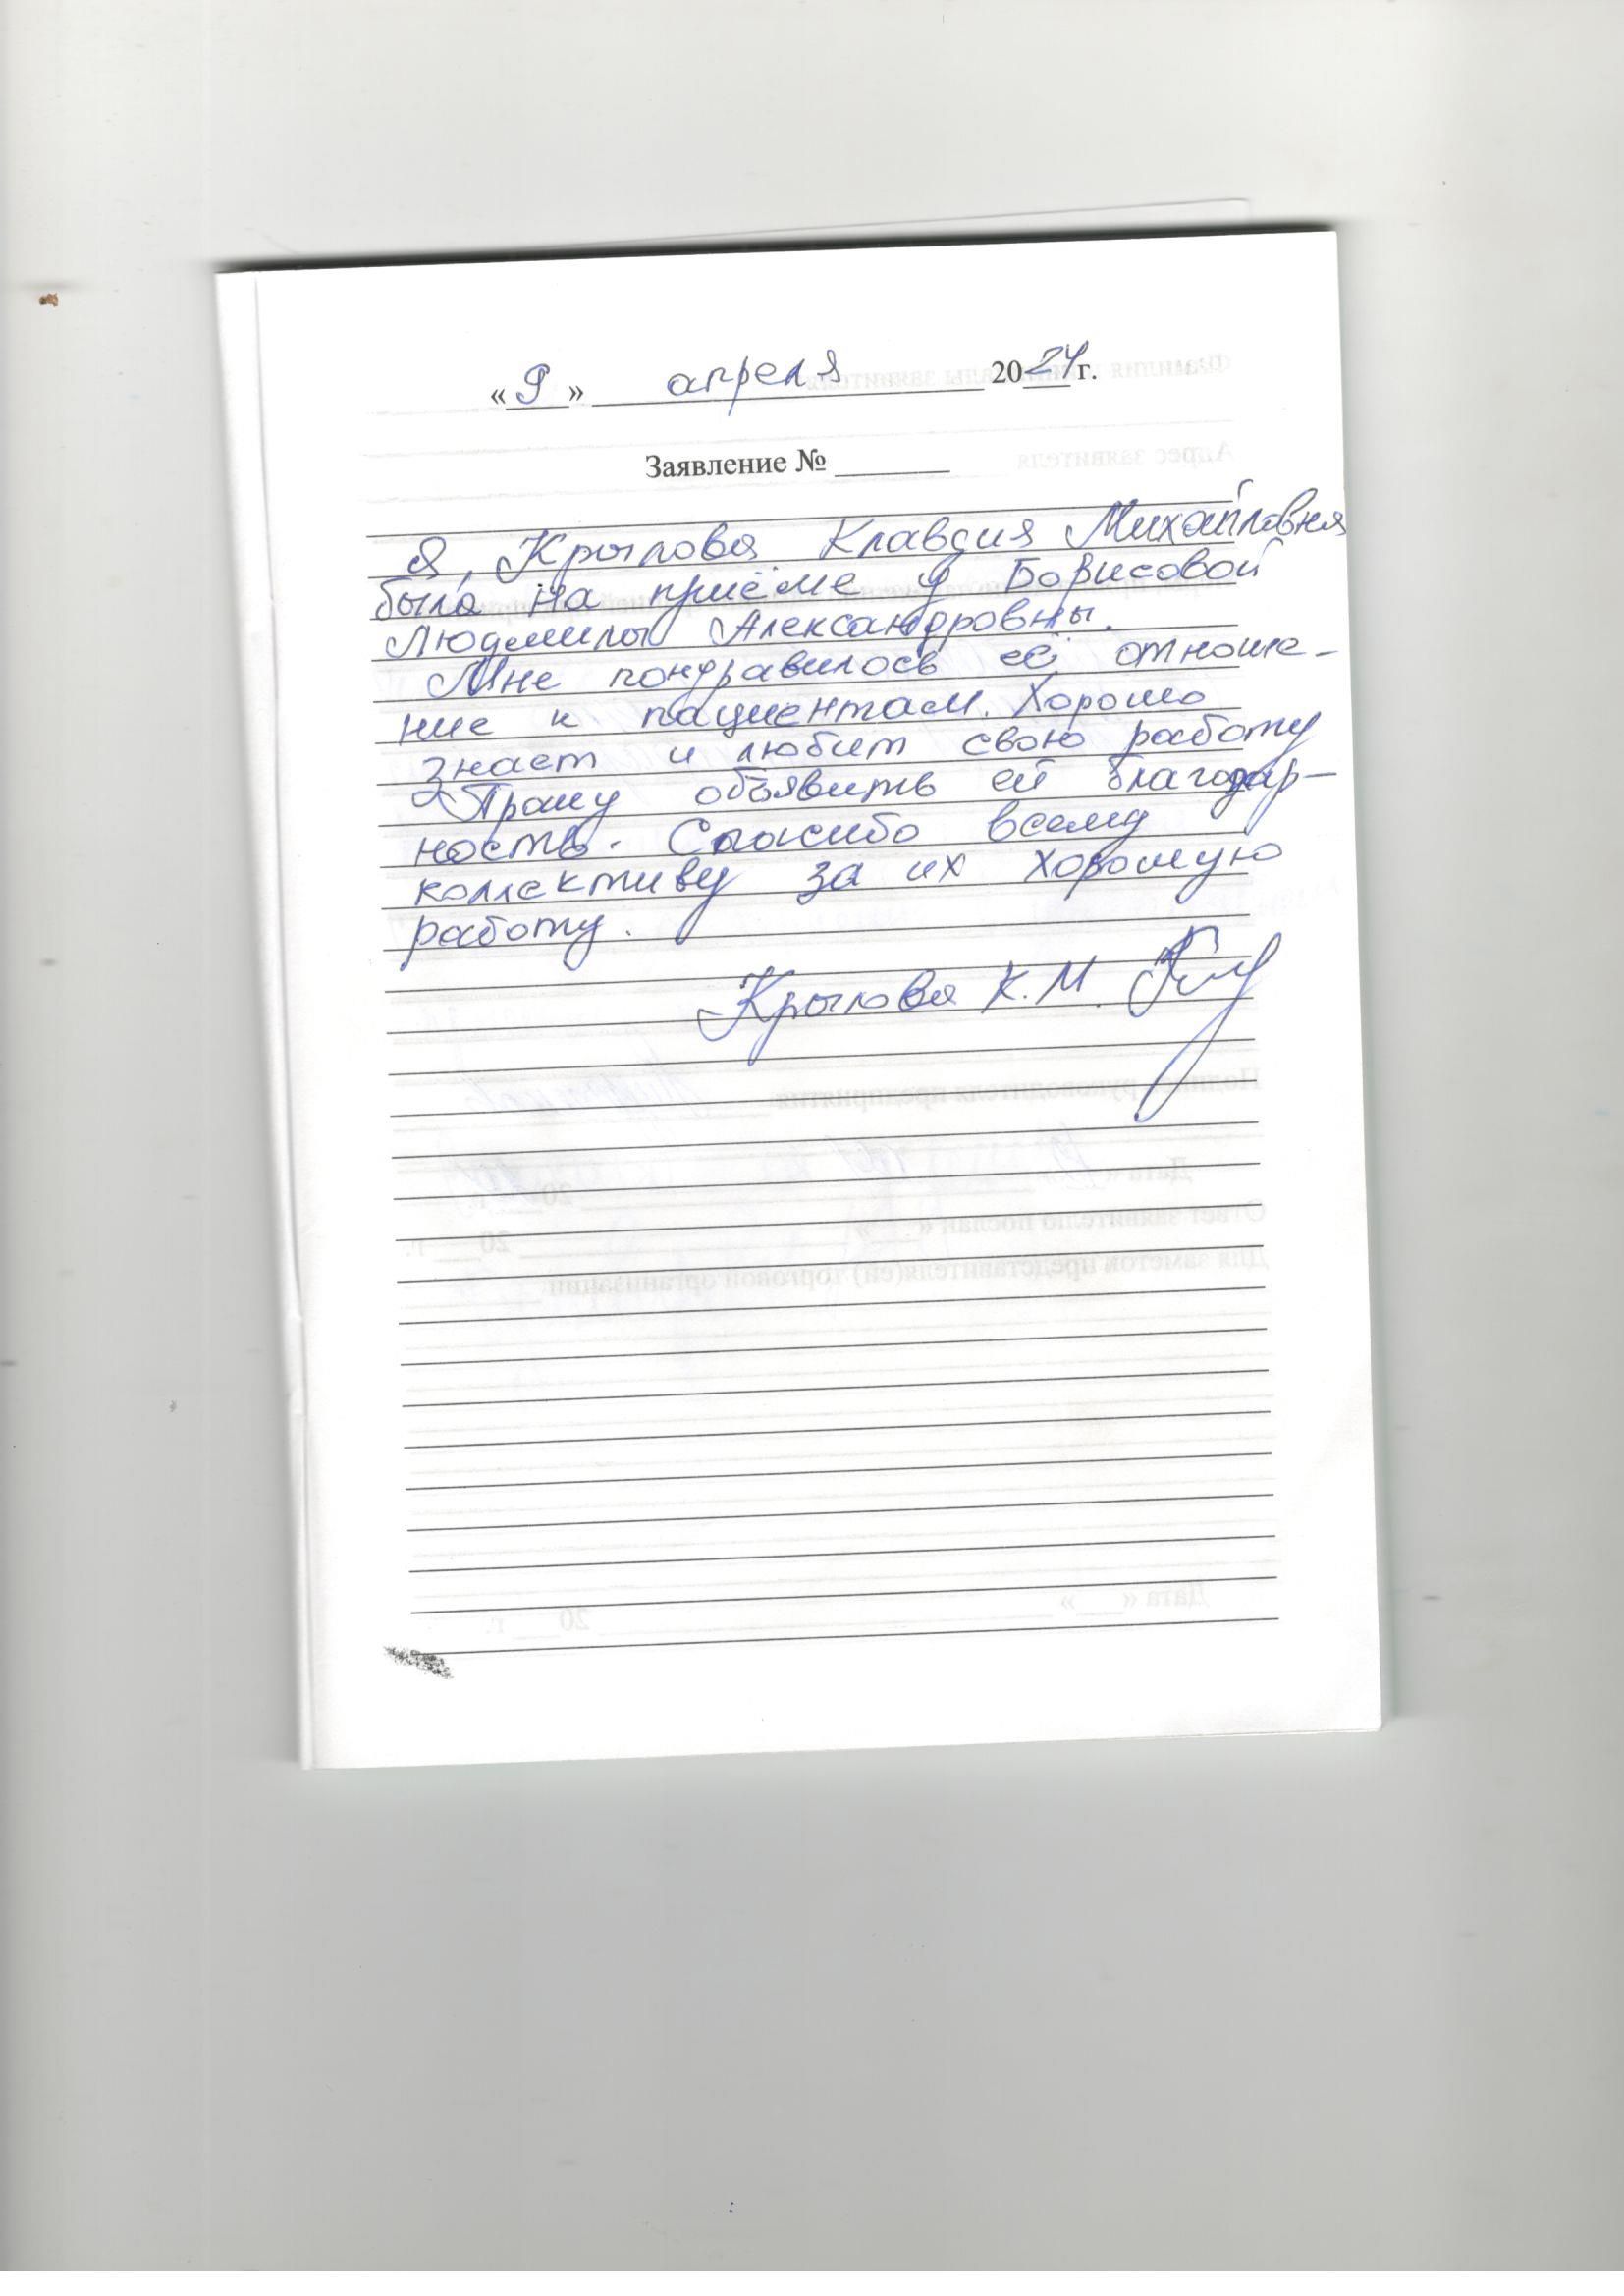 «9» апреля 2024 г.
Заявление №
Я, Крылова Клавдия Михайловна
была на приёме у Борисовой
Людмилы Александровны.
Мне пондравилось её отноше-
ние к пациентам. Хорошо
знает и любит свою работу
Прошу объявить ей благодар-
ность. Спасибо всему
коллективу за их хорошую
работу.
Крылова К.М.